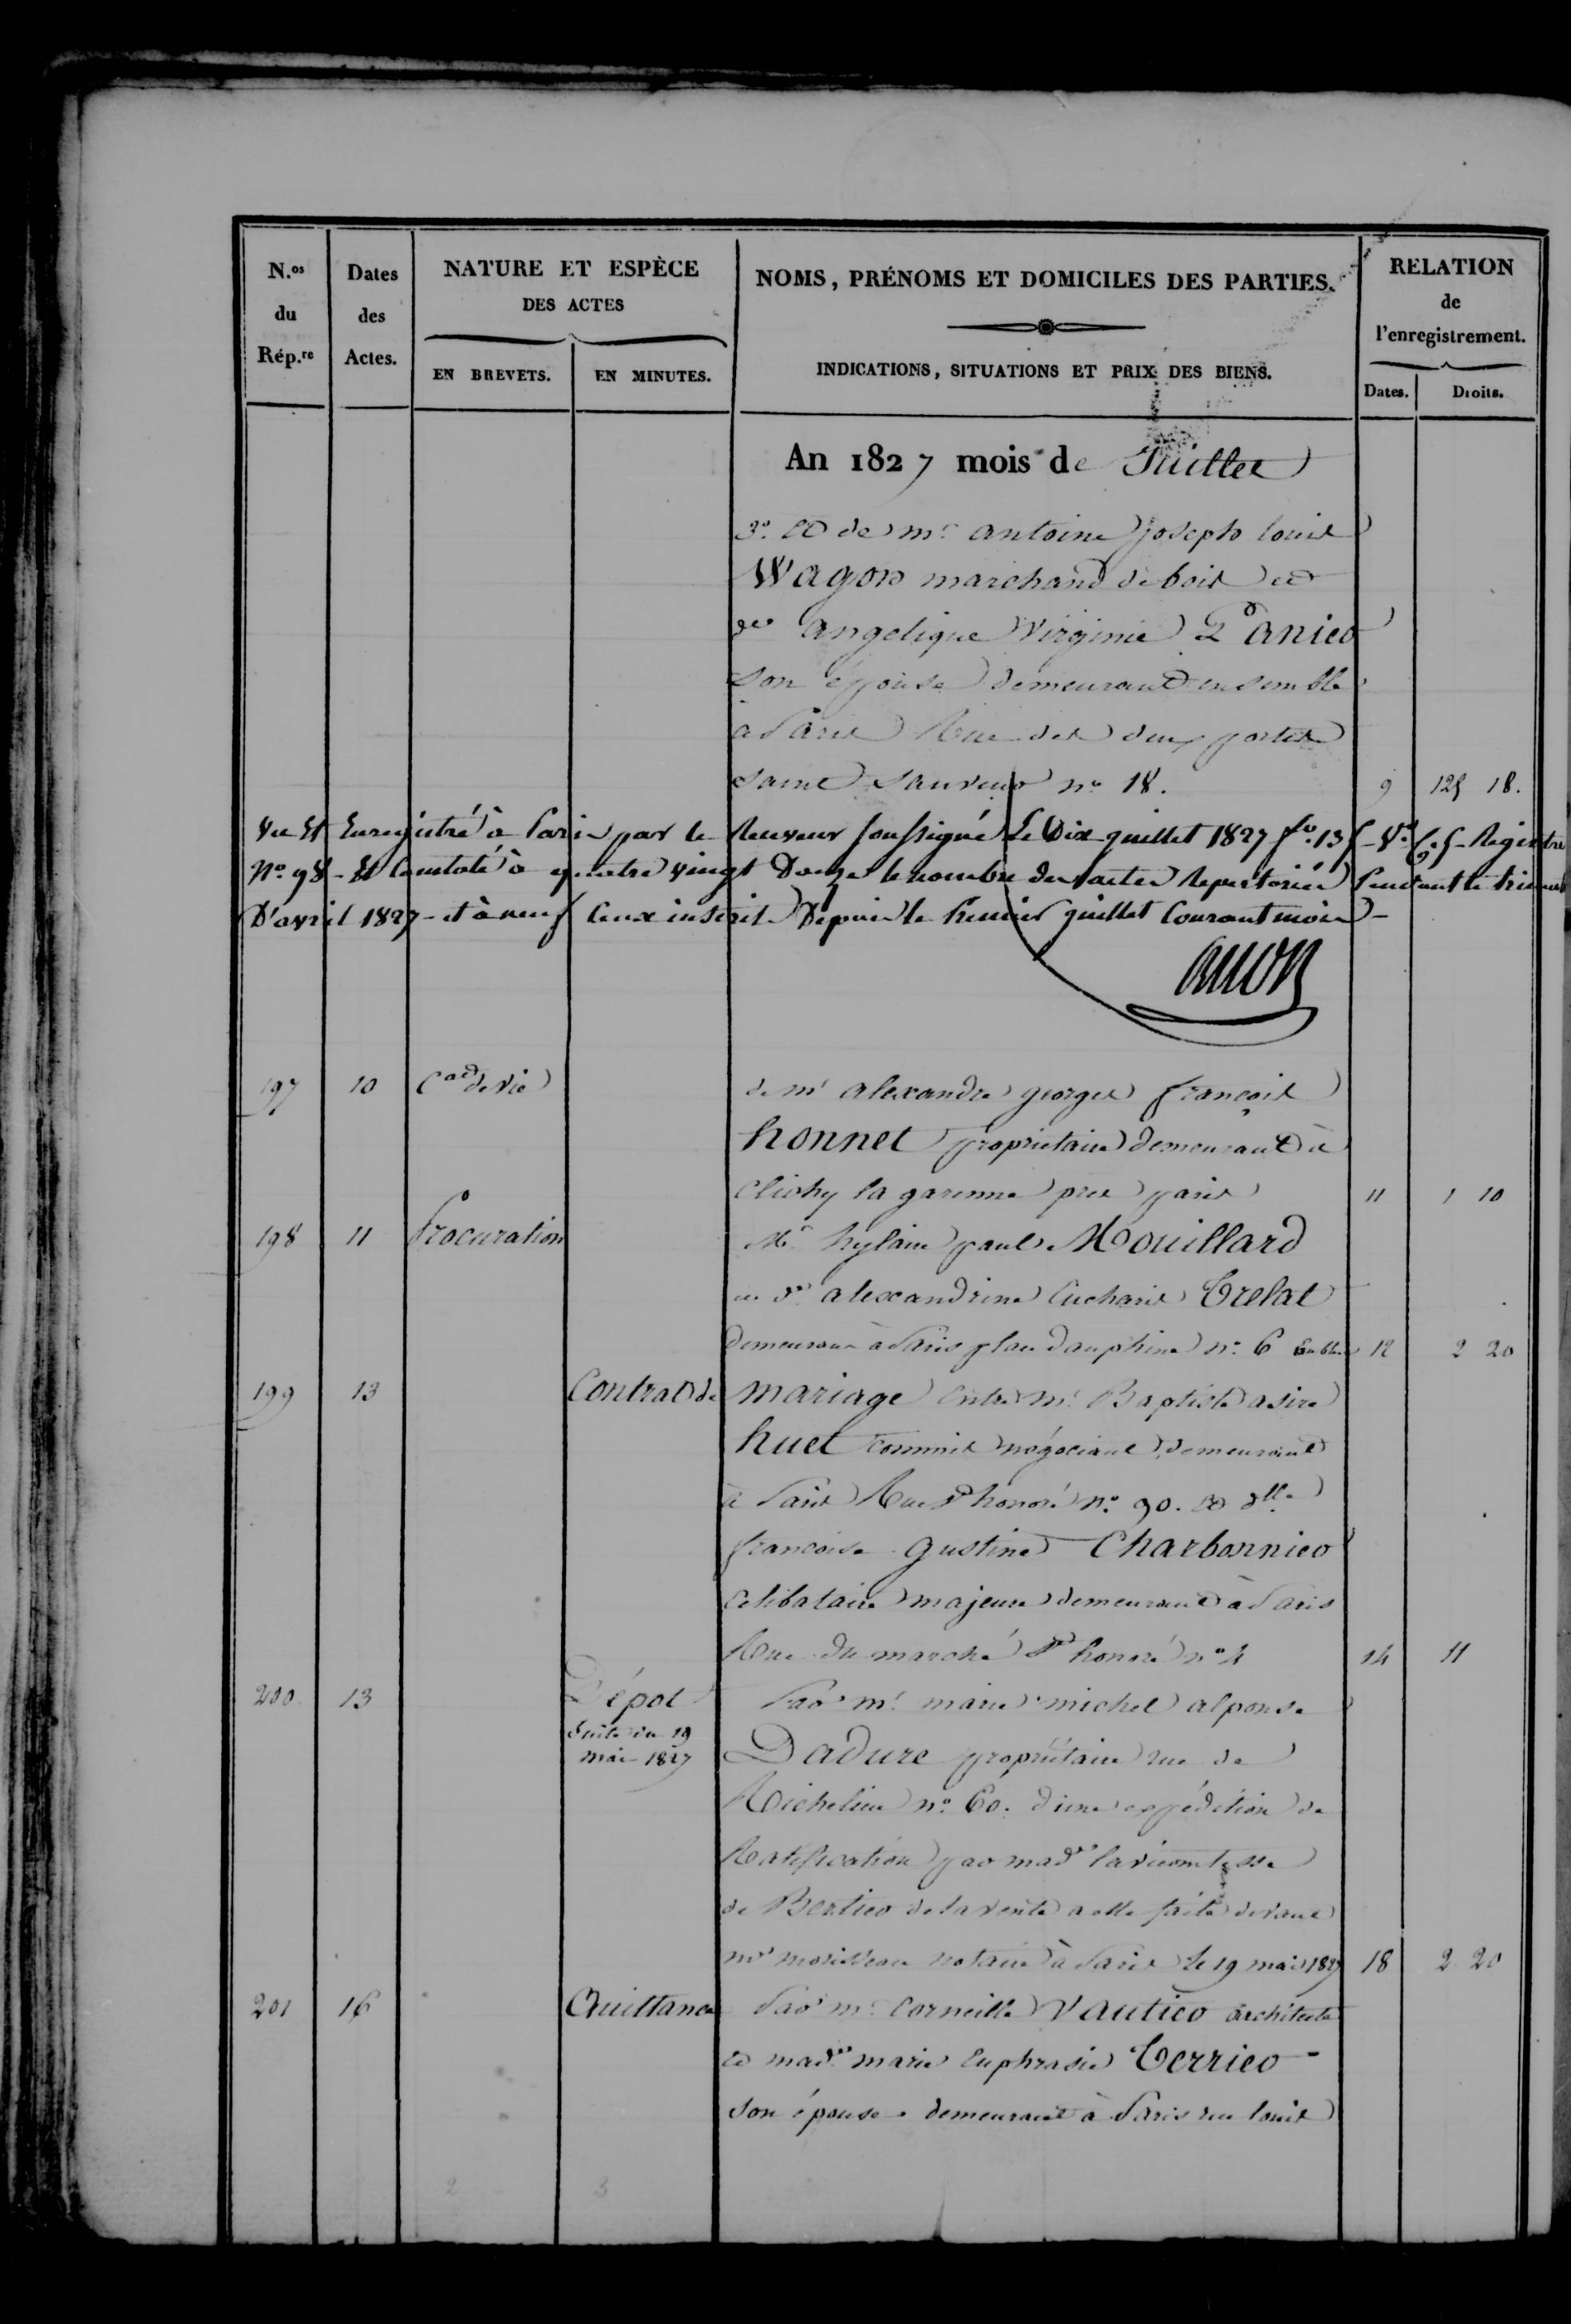 N.os du Rép.re
Dates des Actes.
NATURE ET ESPÈCE DES ACTES
EN BREVETS.
EN MINUTES.
NOMS, PRÉNOMS ET DOMICILES DES PARTIES.
INDICATIONS, SITUATIONS ET PRIX DES BIENS.
RELATION de l'enregistrement.
Dates.
Droits.
An 1827 mois de Juillet
3.º et de mr antoine joseph louis
Wagon marchand de bois et
de angelique Virginie
son épouse demeurant ensemble
à Paris Rue des deux portes
saint Sauveur no 18. 9 125 18.
Vu Et Enregistré à Paris par le Receveur soussigné Le Dix juillet 1827 fo. 135 Vo C. 5 Registre
No. 98 - Et Constaté à quatre vingt Douze le nombre des actes Repertoriés Pendant le trimestre
D'avril 1827 - et à neuf Ceux inscrits Depuis le Premier juillet Courant mois -
197 10 Cat de Vie de mr alexandre georges françois
honnet propriétaire demeurant à
Clichy la garenne pres paris 11 1 10
198 11 Procuration Mr hylaire paul Mouillard
et de alexandrine Eucharis Trelat
demeurant à Paris place Dauphine no. 6 12 2 20
199 13 Contrat de mariage entre mr Baptiste asire
huet commis négociant demeurant
à Paris Rue St honoré no. 90. et dlle
francoise gustine Charbonnier
Celibataire majeure demeurant à Paris
Rue du marché St honoré no 4 14 11
200 13 Dépot Par mr marie michel alponse
Suite du 19 mai 1827
Dadure propriétaire rue de
Richelieu no. 60. d'une expédition de
Ratification par made la vicomtesse
de Bertier de la vente a elle faite devant
me morisseau notaire à Paris le 19 mai 1827 18 2 20
201 16 Quittance Par mr Corneille Vautier architecte
et made marie Euphrasie Terrier
son épouse demeurant à Paris rue louis
2 3